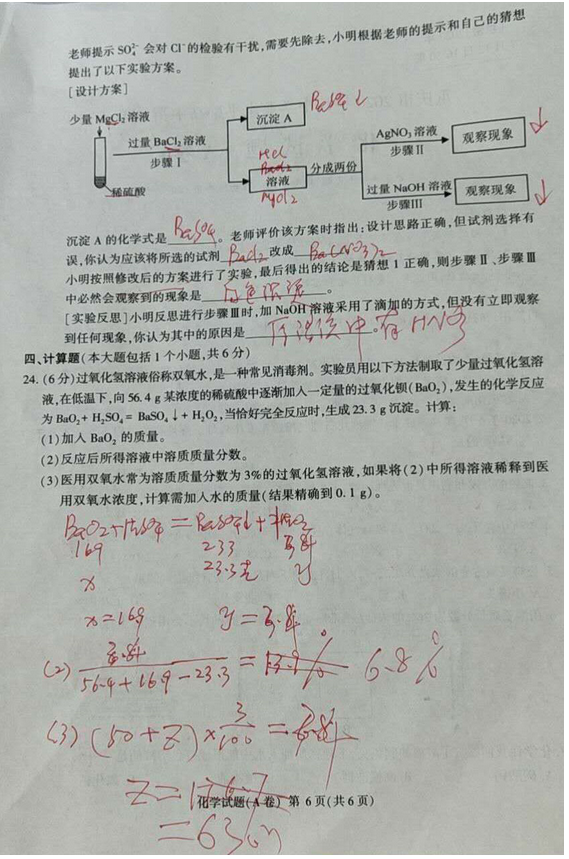 老师提示 SO₄²⁻ 会对 Cl⁻的检验有干扰,需要先除去,小明根据老师的提示和自己的猜想
提出了以下实验方案。
[设计方案]
少量 MgCl₂ 溶液
过量 BaCl₂ 溶液
步骤Ⅰ
稀硫酸
沉淀 A
BaSO₄↓
HCl
BaCl₂
溶液
MgCl₂
分成两份
AgNO₃ 溶液
步骤Ⅱ
观察现象
↓
过量 NaOH 溶液
步骤Ⅲ
观察现象
↓
沉淀 A 的化学式是 BaSO₄ 。老师评价该方案时指出:设计思路正确,但试剂选择有
误,你认为应该将所选的试剂 BaCl₂ 改成 Ba(NO₃)₂
小明按照修改后的方案进行了实验,最后得出的结论是猜想 1 正确,则步骤Ⅱ、步骤Ⅲ
中必然会观察到的现象是 白色沉淀 。
[实验反思]小明反思进行步骤Ⅲ时,加 NaOH 溶液采用了滴加的方式,但没有立即观察
到任何现象,你认为其中的原因是 中有 HNO₃ 。
四、计算题(本大题包括 1 个小题,共 6 分)
24. (6 分)过氧化氢溶液俗称双氧水,是一种常见消毒剂。实验员用以下方法制取了少量过氧化氢溶
液,在低温下,向 56.4 g 某浓度的稀硫酸中逐渐加入一定量的过氧化钡(BaO₂),发生的化学反应
为 BaO₂ + H₂SO₄ = BaSO₄↓ + H₂O₂,当恰好完全反应时,生成 23.3 g 沉淀。计算:
(1)加入 BaO₂ 的质量。
(2)反应后所得溶液中溶质质量分数。
(3)医用双氧水常为溶质质量分数为 3%的过氧化氢溶液,如果将(2)中所得溶液稀释到医
用双氧水浓度,计算需加入水的质量(结果精确到 0.1 g)。
BaO₂+H₂SO₄=BaSO₄↓+H₂O₂
169 233
x 23.3克 y
x=16.9 y=3.4
(2) 3.4/(56.4+16.9-23.3) = 6.8%
(3) (50+Z)×3/100=3.4
Z=
=63.
化学试题(A 卷) 第 6 页(共 6 页)